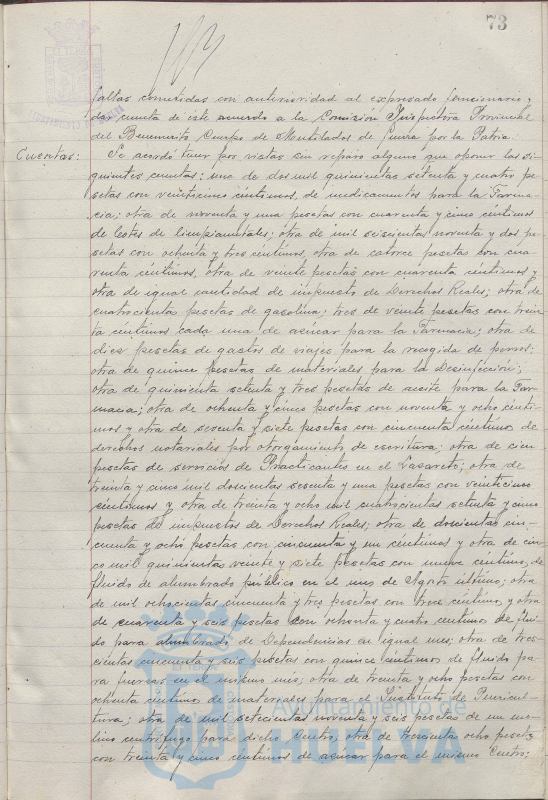 73
faltas cometidas con anterioridad al expresado funcionario y
dar cuenta de este acuerdo a la Comisión Inspectora Provincial
del Benemérito Cuerpo de Mutilados de guerra por la Patria.
Cuentas: Se acordó tener por vistas sin reparo alguno que oponer las si-
guientes cuentas: una de dos mil quinientas setenta y cuatro pe-
setas con veinticinco céntimos, de medicamentos para la Farma-
cia; otra de noventa y una pesetas con cuarenta y cinco céntimos
de botes de limpiametales; otra de mil seiscientas noventa y dos pe-
setas con ochenta y tres céntimos, otra de catorce pesetas con cua-
renta céntimos, otra de veinte pesetas con cuarenta céntimos y
otra de igual cantidad de impuesto de Derechos Reales; otra de
cuatrocientas pesetas de gasolina; tres de veinte pesetas con trein-
ta céntimos cada una de azúcar para la Farmacia; otra de
diez pesetas de gastos de viajes para la recogida de perros;
otra de quince pesetas de materiales para la Desinfección;
otra de quinientas setenta y tres pesetas de aceite para la Far-
macia; otra de ochenta y cinco pesetas con noventa y ocho cénti-
mos y otra de sesenta y siete pesetas con cincuenta céntimos de
derechos notariales por otorgamiento de escritura; otra de cien
pesetas de servicios de Practicantes en el Lazareto; otra de
treinta y cinco mil doscientas sesenta y una pesetas con veinticinco
céntimos y otra de treinta y ocho mil cuatrocientas setenta y cinco
pesetas de impuestos de Derechos Reales; otra de doscientas cin-
cuenta y ocho pesetas con cincuenta y un céntimos y otra de cin-
co mil quinientas veinte y siete pesetas con nueve céntimos, de
fluido de alumbrado público en el mes de Agosto último; otra
de mil ochocientas cincuenta y tres pesetas con trece céntimos, y otra
de cuarenta y seis pesetas con ochenta y cuatro céntimos de flui-
do para alumbrado de Dependencias en igual mes; otra de tres-
cientas cincuenta y seis pesetas con quince céntimos de fluido pa-
ra fuerzas en el mismo mes; otra de treinta y ocho pesetas con
ochenta céntimos de materiales para el Instituto de Puericul-
tura; otra de mil setecientas noventa y seis pesetas de un mo-
lino centrífugo para dicho Centro; otra de trescientas ocho pesetas
con treinta y cinco céntimos de azúcar para el mismo Centro;
Ayuntamiento de
HUELVA